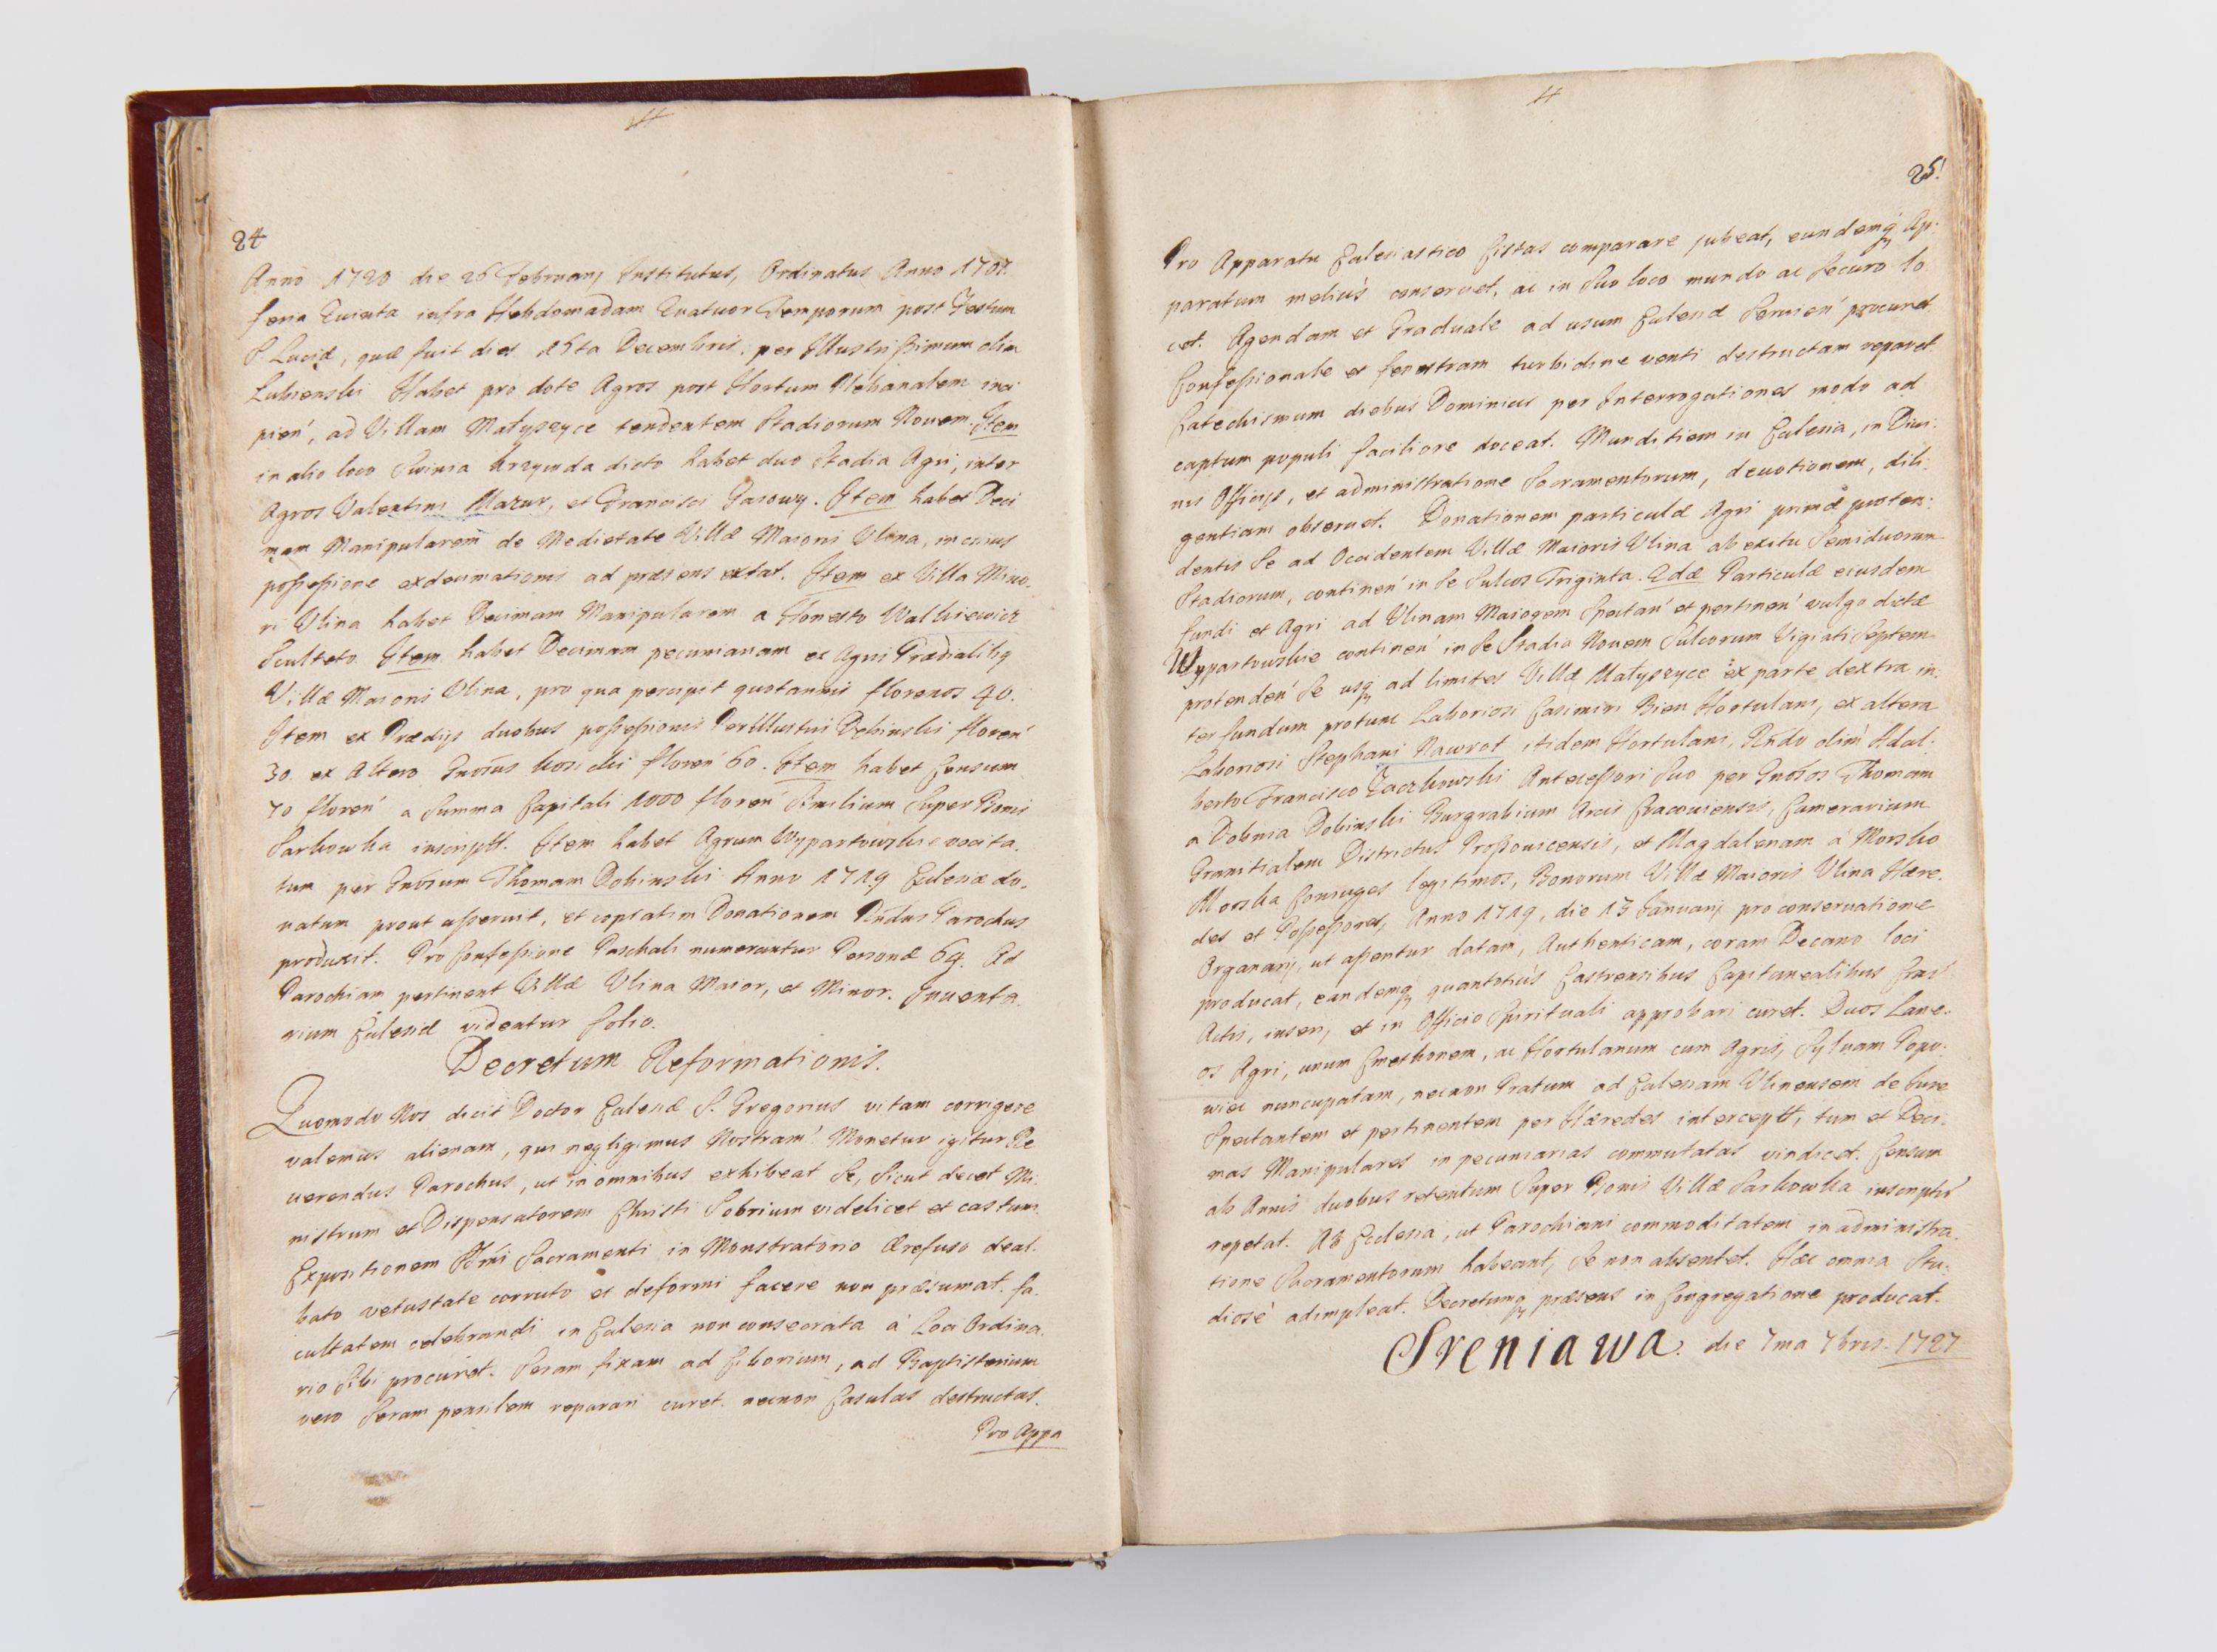 24
Anno 1720 die 26 Februarij Institutus, Ordinatus Anno 1707.
feria Quinta infra Hebdomadam Quatuor Temporum post Festum
S. Luciæ, quæ fuit dies 15ta Decembris, per Illustrissimum olim
Lubienski Habet pro dote Agros post Hortum Plebanalem inci
pien', ad Villam Małyszyce tendentem Stadiorum Novem. Item
in alio loco Swinia krzywda dicto habet duo Stadia Agri, inter
Agros Valentini Mazur, et Francisci Gasowy. Item habet Deci
mam Manipularem de Medietate Villæ Maioris Ulina, in cuius
possessione exdecimationis ad præsens extat. Item ex Villa Mino.
ri Ulina habet Decimam Manipularem a Honesto Walkiewicz
Sculteto. Item habet Decimam pecuniariam ex Agris Prædialibq
Villæ Maioris Ulina, pro qua percipit quotannis florenos 40.
Item ex Prædijs duobus possessionis Perillustris Debinski floren'
30. ex Altero Gnosus floren' 60. Item habet Censum
70 floren' a Summa Capitali 1000 floren' Similium Super Bonis
Sarkowka inscriptt. Item habet Agrum Wypartowskie vocita.
tum per Gnosum Thomam Dobinski Anno 1719 Eclesiæ do.
natum prout asseruit, et copiatim Donationem Rndus Parochus
produxit. Pro Confessione Paschali numerantur Personæ 69. Ad
Parochiam pertinent Villæ Ulina Maior, et Minor. Inventa.
rium Eclesiæ videatur folio.
Decretum Reformationis.
Quomodo Nos dicit Doctor Eclesiæ S. Gregorius vitam corrigere
valemus alienam, qui negligimus Nostram! Monetur igitur Re
verendus Parochus, ut in omnibus exhibeat Se, Sicut decet Mi.
nistrum et Dispensatorem Christi Sobrium videlicet et castum.
Expositionem SSmi Sacramenti in Monstratorio Ærefuso deal.
bato vetustate corruto et deformi facere non præsumat. fa.
cultatem celebrandi in Eclesia non consecrata à Loci Ordina.
rio Sibi procuret. Seram fixam ad Ciborium, ad Baptisterium
vero Seram pensilem reparari curet. necnon Casulas destructas.
Pro Appa
25.
Pro Apparatu Eclesiastico Cistas comparare jubeat, eundemq Ap:
paratum meliùs conservet, ac in Suo loco mundo ac Securo lo
cet. Agendam et Graduale ad usum Eclesiæ Servien' procuret.
Confessionale et fenestram turbidine venti destructam reparet.
Catechismum diebus Dominicis per Interrogationes modo ad
captum populi faciliore doceat. Munditiem in Eclesia, in Divi:
nis Officijs, et administratione Sacramentorum, devotionem, dili:
gentiam observet. Donationem particulæ Agri primæ proten:
dentis Se ad Occidentem Villæ Maioris Ulina ab exitu Semiduorum
Stadiorum, continen' in Se Sulcos Triginta. 2dæ Particulæ eiusdem
fundi et Agri ad Ulinam Maiorem Spectan' et pertinen' vulgo dictæ
Wypartowskie continen' in Se Stadia Novem Sulcorum Viginti Septem
protenden' Se usq ad limites Villæ Małyszyce ex parte dextra in:
ter fundum protunc Laboriosi Casimiri Bien Hortulani, ex altera
Laboriosi Stephani Nawrot itidem Hortulani, Rndo olim Adal:
berto Francisco Zaczkowski Antecessori Suo per Gnosos Thomam
a Dobnia Dobinski Burgrabium Arcis Cracoviensis, Camerarium
Granitialem Districtus Proszovicensis, et Magdalenam à Morsko
Morska Coniuges legitimos, Bonorum Villæ Maioris Ulina Hære.
des et Possessores, Anno 1719, die 13 Januarij pro conservatione
Organarij, ut assentur datam, Authenticam, coram Decano loci
producat, eandemq quantotiùs Castrensibus Capitanealibus Crac'
Actis, inseri, et in Officio Spirituali approbari curet. Duos Lane.
os Agri, unum Cmethonem, ac Hortulanum cum Agris, Sylvam Popo:
wiec nuncupatam, necnon Pratum ad Eclesiam Ulinensem de Iure
Spectantem et pertinentem per Hæredes interceptt, tum et Deci.
mas Manipulares in pecuniarias commutatas vindicet. Censum
ab Annis duobus retentum Super Bonis Villæ Sarkowka inscriptis
repetat. Ab Ecclesia, ut Parochiani commoditatem in administra.
tione Sacramentorum habeant, Se non absentet. Hæc omnia Stu:
diosè adimpleat. Decretumq præsens in Congregatione producat.
Sreniawa. die 7ma 7bris. 1727